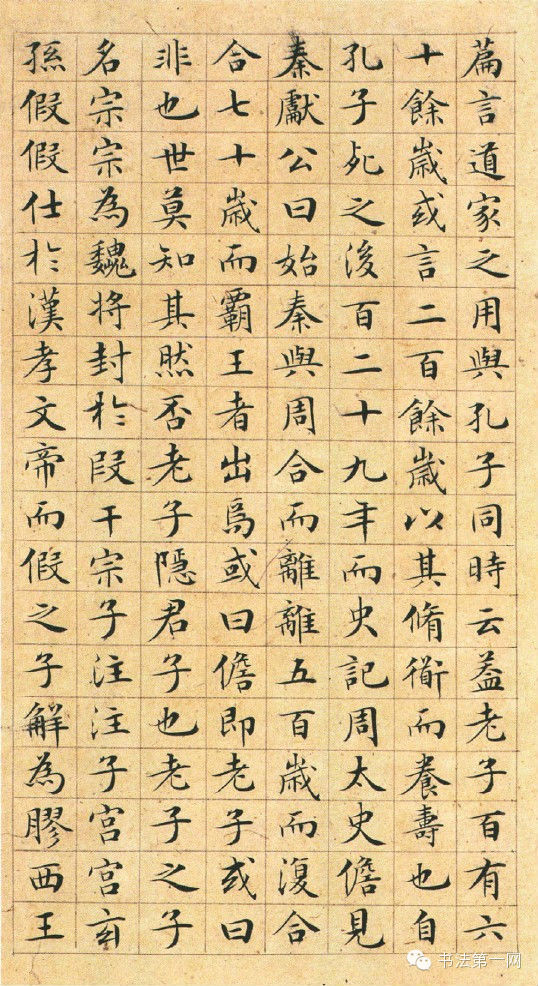 篇言道家之用與孔子同時云葢老子百有六
十餘歲或言二百餘歲以其脩衜而養壽也自
孔子死之後百二十九年而史記周太史儋見
秦獻公曰始秦與周合而離離五百歲而復合
合七十歲而霸王者出焉或曰儋即老子或曰
非也世莫知其然否老子隱君子也老子之子
名宗宗為魏將封於段干宗子注注子宮宮玄
孫假假仕於漢孝文帝而假之子解為膠西王
书法第一网